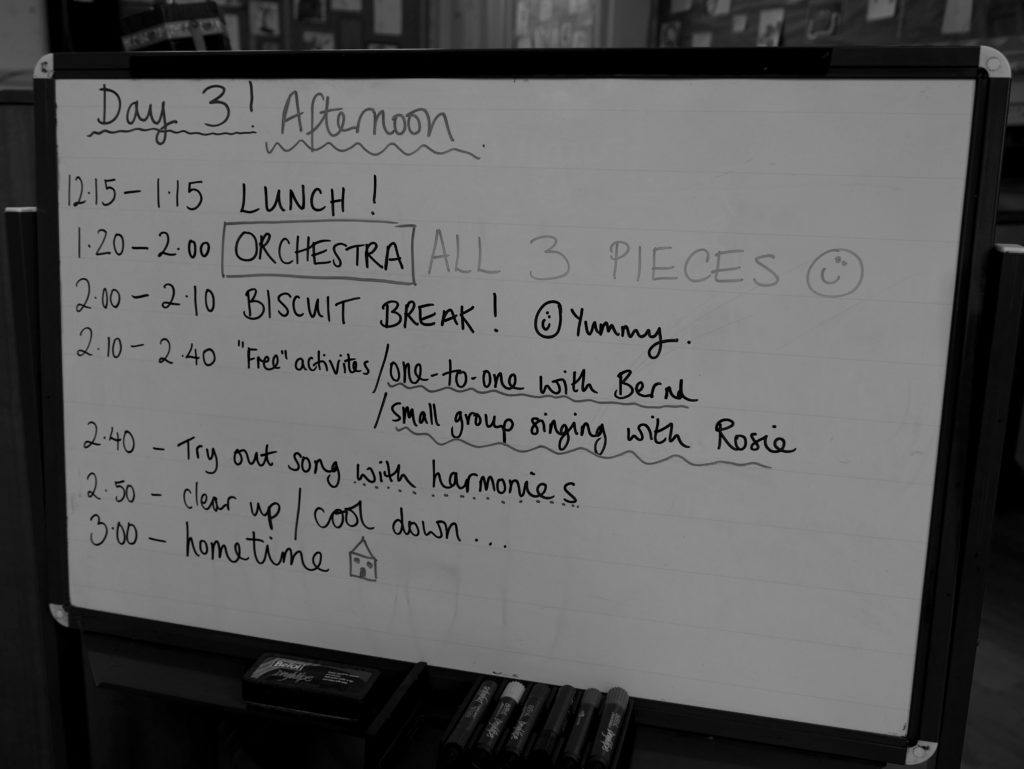 Day 3! Afternoon.
12.15 – 1.15 LUNCH!
1.20 – 2.00 ORCHESTRA ALL 3 PIECES
2.00 – 2.10 BISCUIT BREAK! Yummy.
2.10 – 2.40 "Free" activites / one-to-one with Bernd
/ small group singing with Rosie
2.40 – Try out song with harmonies
2.50 – clear up / cool down...
3.00 – hometime
Berol